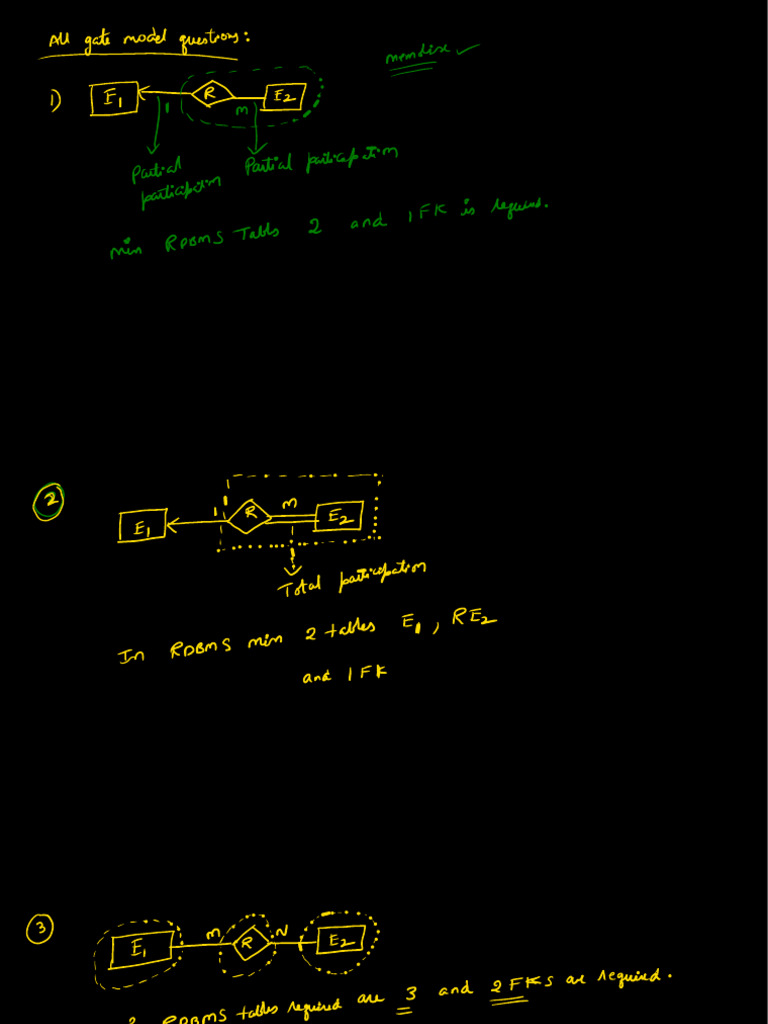 All gate model questions:
memorise ✓
1) E1 1 R M E2
Partial participation
Partial participation
min RDBMS Tables 2 and 1 FK is required.
2 E1 1 R M E2
Total participation
In RDBMS min 2 tables E1, RE2
and 1 FK
3 E1 M R N E2
RDBMS tables required are 3 and 2 FKs are required.